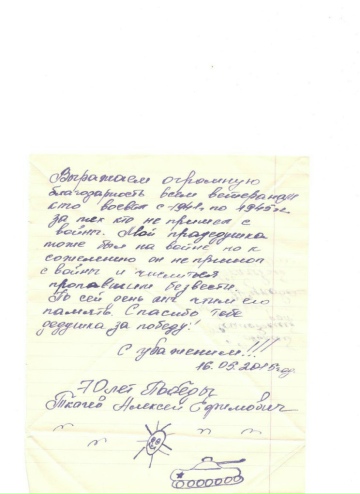 Выражаем огромную
благодарность всем ветеранам
кто воевал с 1941 по 1945 г.
за тех кто не пришел с
войны. Мой прадедушка
тоже был на войне но к
сожелению он не пришол
с войны и числиться
пропавшим безвести.
По сей день мы чтим его
память. Спасибо тебе
дедушка за победу!
С уважением!!!
16.05.2015 год.
70 лет Победы
Ткачёв Алексей Ефимович